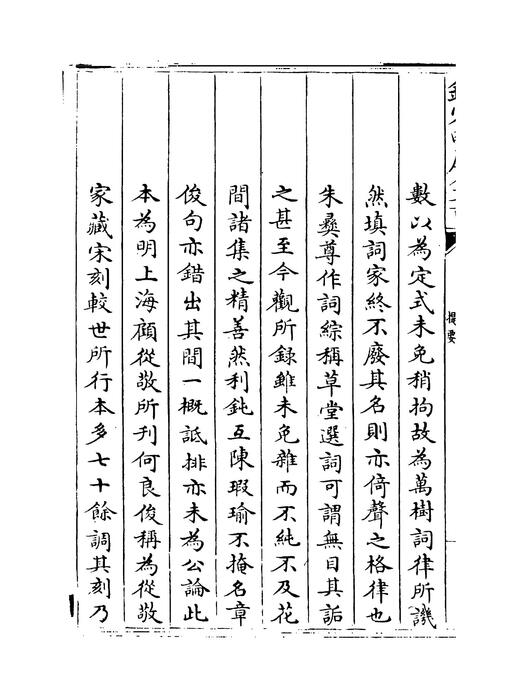 提要
數以為定式未免稍拘故為萬樹詞律所譏
然填詞家終不廢其名則亦倚聲之格律也
朱彝尊作詞綜稱草堂選詞可謂無目其詬
之甚至今觀所錄雖未免雜而不純不及花
間諸集之精善然利鈍互陳瑕瑜不掩名章
俊句亦錯出其間一概詆排亦未為公論此
本為明上海顧從敬所刊何良俊稱為從敬
家藏宋刻較世所行本多七十餘調其刻乃